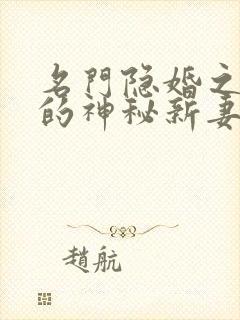 名門隐婚之
的神秘新妻
趙航